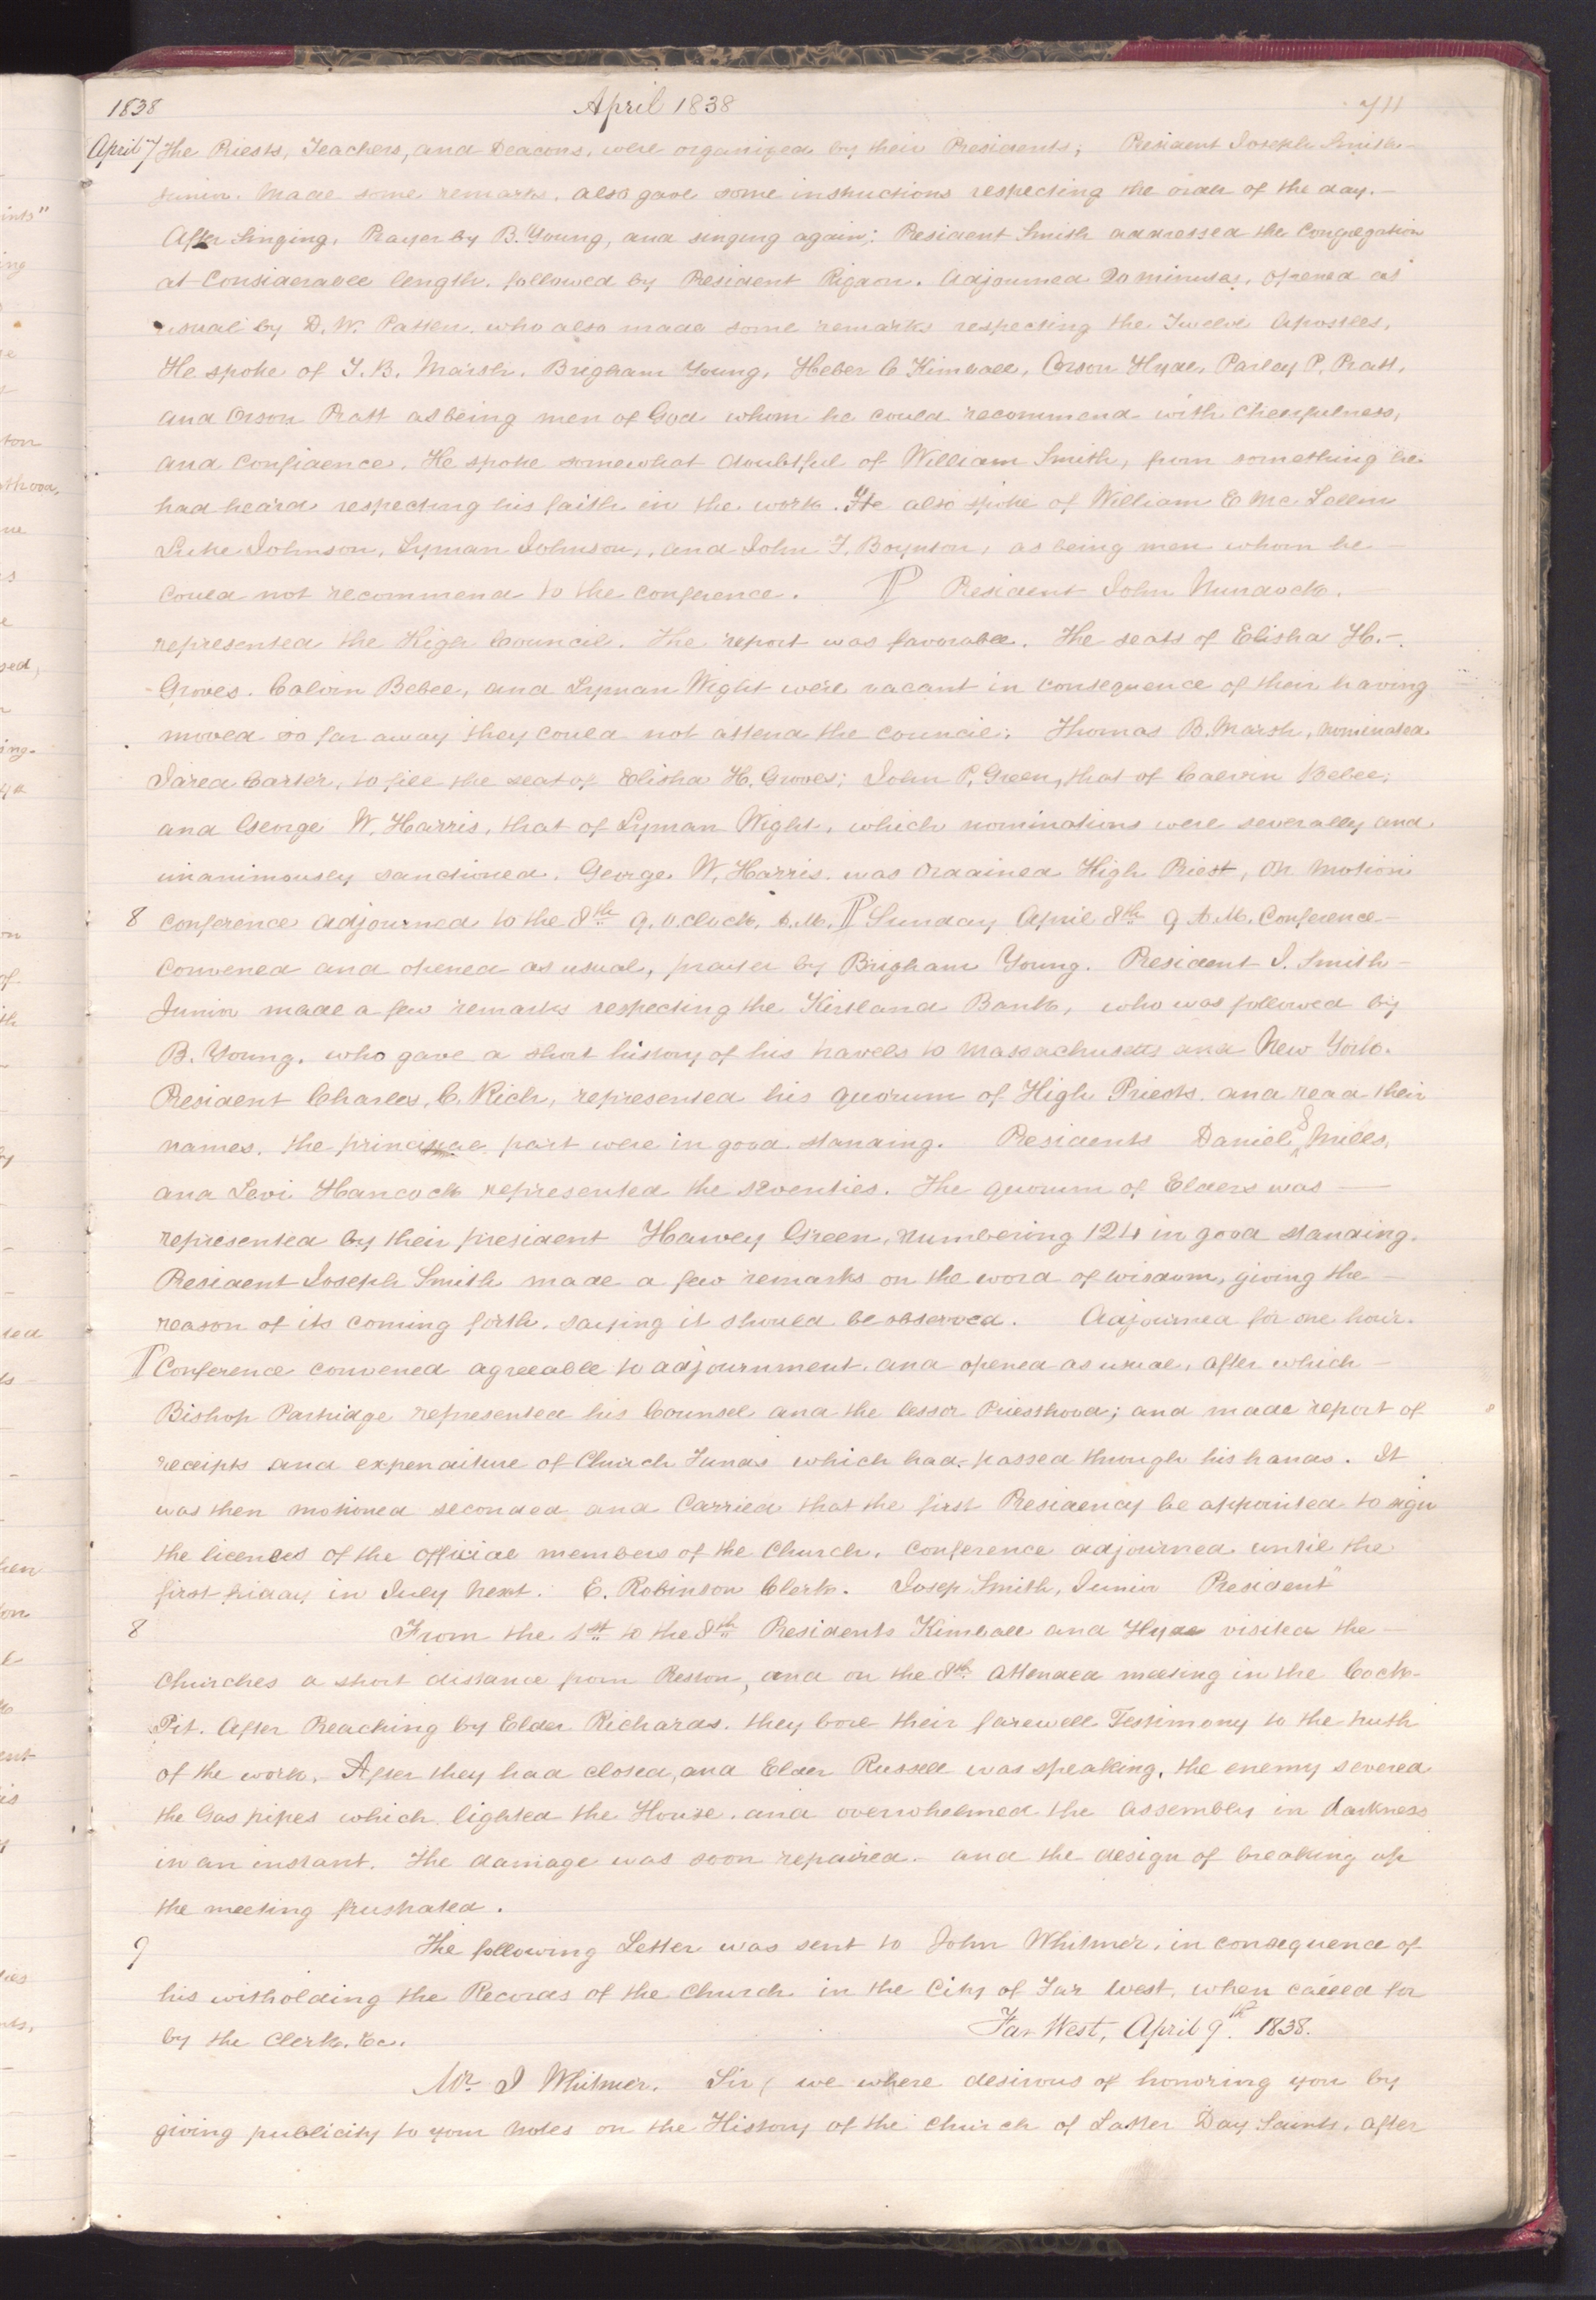 1838 April 1838 711
April 7 The Priests, Teachers, and Deacons, were organized by their Presidents; President Joseph Smith
Junior. Made some remarks, also gave some instructions respecting the order of the day.—
After Singing, Prayer by B. Young, and singing again; President Smith addressed the Congregation
at Considerable length, followed by President Rigdon. Adjourned 20 minutes, opened as
usual by D. W. Patten, who also made some remarks respecting the Twelve Apostles,
He spoke of T. B. Marsh, Brigham Young, Heber C Kimball, Orson Hyde, Parley P. Pratt,
and Orson Pratt as being men of God whom he could recommend with Cheerfulness,
and Confidence. He spoke somewhat doubtful of William Smith, from something he
had heard respecting his faith in the work. He also spoke of William E Mc Lellin
Luke Johnson, Lyman Johnson, and John F. Boynton, as being men whom he —
Could not recommend to the Conference. ¶ President John Murdock. —
represented the High Council. The report was favorable. The seats of Elisha H.-
Groves. Calvin Bebee, and Lyman Wight were vacant in consequence of their having
moved so far away they could not attend the council; Thomas B. Marsh, nominated
Jared Carter, to fill the seat of Elisha H. Groves; John P. Green, that of Calvin Bebee;
and George W. Harris, that of Lyman Wight, which nominations were severally and
unanimously sanctioned. George W. Harris was Ordained High Priest, On Motion
8 Conference Adjourned to the 8th 9. o.clock, A.M. ¶ Sunday April 8th 9 A.M. Conference —
Convened and opened as usual, prayer by Brigham Young. President J. Smith —
Junior made a few remarks respecting the Kirtland Bank, who was followed by
B. Young, who gave a short history of his travels to Massachusetts and New York.
President Charles, C. Rich, represented his quorum of High Priests. and read their
names, the principal part were in good standing. Presidents Daniel S Miles,
and Levi Hancock represented the seventies. The quorum of Elders was —
represented by their president Harvey Green, numbering 124 in good standing.
President Joseph Smith made a few remarks on the word of wisdom, giving the —
reason of its coming forth, saying it should be observed. Adjourned for one hour.
¶ Conference convened agreeable to adjournment, and opened as usual, after which —
Bishop Partridge represented his Counsel and the lesser Priesthood; and made report of
receipts and expenditure of Church Funds which had passed through his hands. It
was then motioned seconded and Carried that the first Presidency be appointed to sign
the licences of the official members of the Church. Conference adjourned until the
first friday in July next. E. Robinson Clerk. Josep Smith, Junior President"
8 From the 1st to the 8th Presidents Kimball and Hyde visited the —
Churches a short distance from Preston, and on the 8th attended meeting in the Cock-
Pit. After Preaching by Elder Richards. they bore their farewell Testimony to the truth
of the work. After they had closed, and Elder Russell was speaking, the enemy severed
the Gas pipes which lighted the House. and overwhelmed the assembly in darkness
in an instant. The damage was soon repaired. and the design of breaking up
the meeting frustrated.
9 The following Letter was sent to John Whitmer, in consequence of
his witholding the Records of the Church in the City of Far West, when called for
by the Clerk. &c. Far West, April 9th. 1838.
Mr. J Whitmer. Sir, we where desirous of honoring you by
giving publicity to your notes on the History of the Church of Latter Day Saints, after